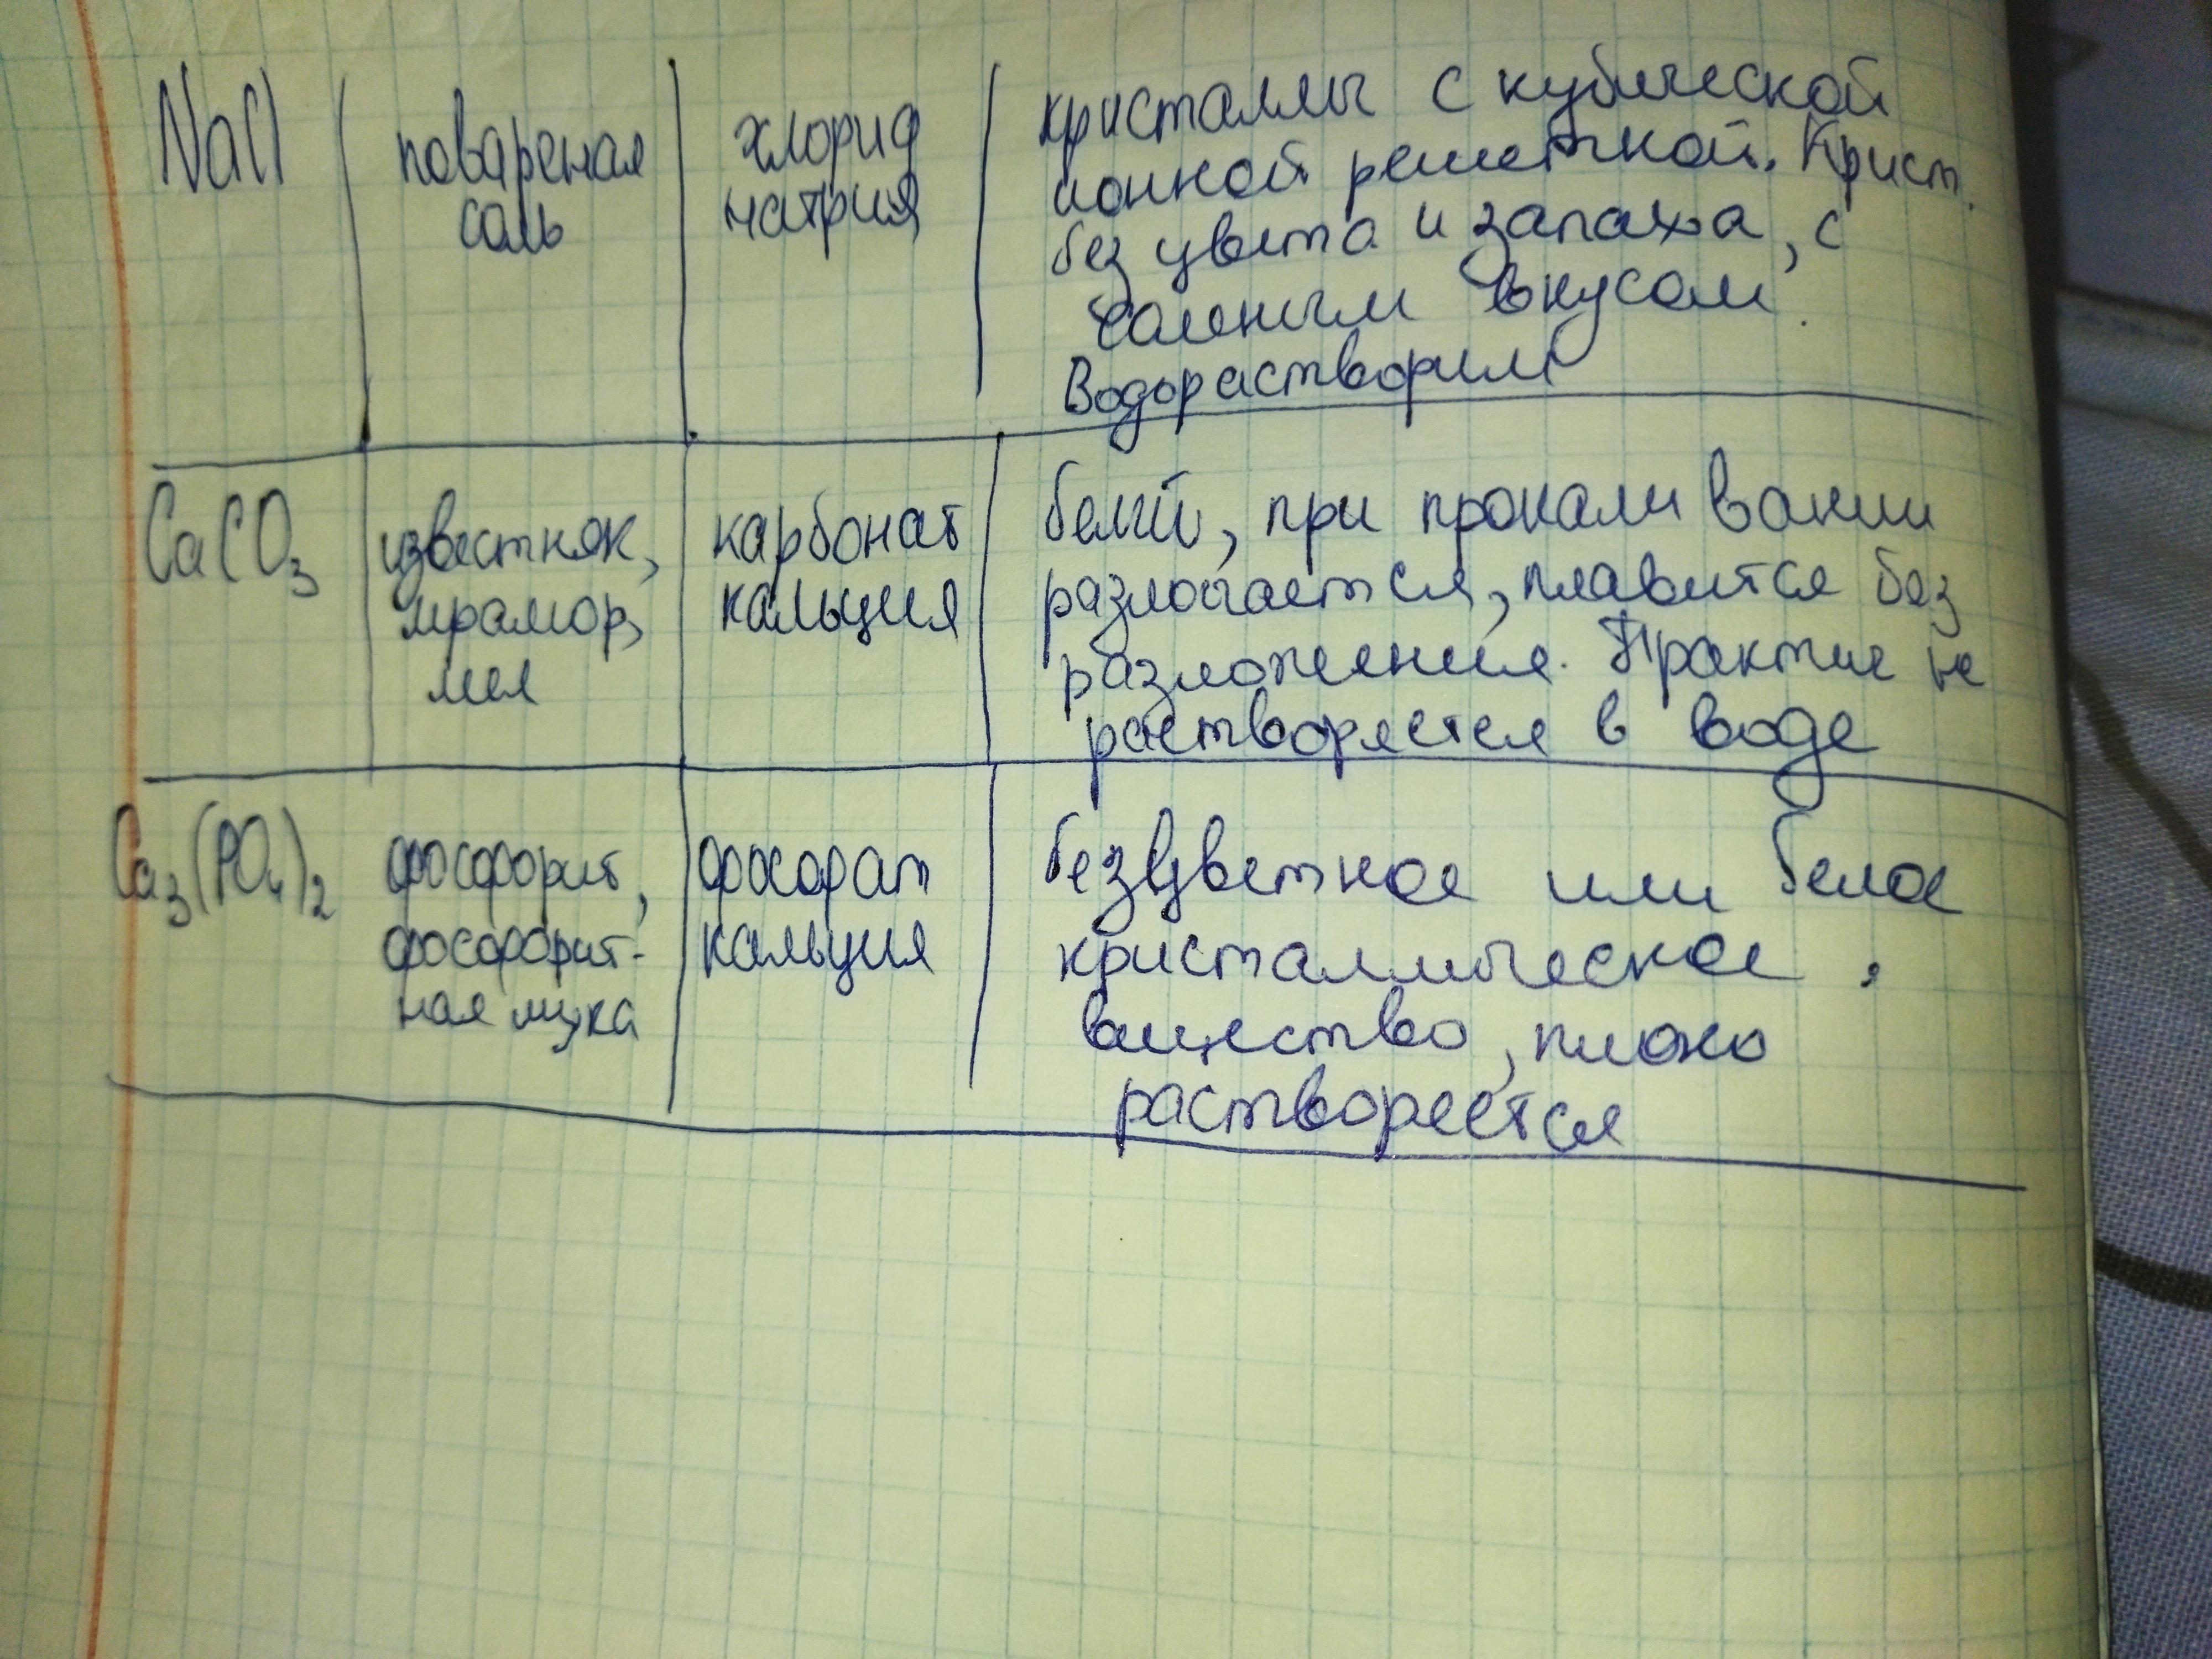 NaCl
повареная
соль
хлорид
натрия
кристаллы с кубической
ионной решеткой. Крист.
без цвета и запаха, с
соленым вкусом.
Водорастворим
CaCO₃
известняк,
мрамор,
мел
карбонат
кальция
белый, при прокаливании
разлогается, плавится без
разложения. Практич не
растворяется в воде
Ca₃(PO₄)₂
фосфорит,
фосфорит-
ная мука
фосфат
кальция
безцветное или белое
кристаллическое
вещество, плохо
раствореется